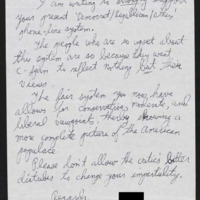 I am writing to strongly support
your present "Democrat/Republican/other"
phone-line system.
The people who are so upset about
this system are so because they want
C-Span to reflect nothing but their
views.
The fair system you now have
allows for conservative, moderate, and
liberal viewpoints, thereby showing a
more complete picture of the American
populace.
Please don't allow the critics' letter
diatribes to change your impartiality.